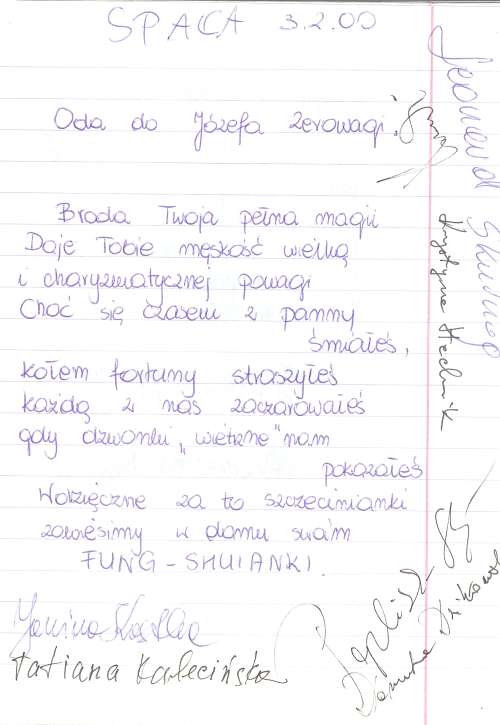 SPACA 3.2.00
Oda do Józefa Zerowagi.
Broda Twoja pełna magii
Daje Tobie męskość wielką
i charyzmatycznej powagi
Choć się czasem z panny
śmiałeś,
kołem fortuny straszyłeś
każdą z nas zaczarowałeś
gdy dzwonki „wietrzne" nam
pokazałeś
Wdzięczne za to szczecinianki
zawiesimy w domu swoim
FUNG-SHUIANKI.
Janina
Tatiana Kałecińska
Danuta
Krystyna